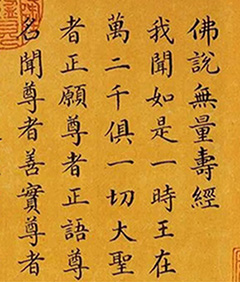 佛說無量壽經
我聞如是一時王在
萬二千俱一切大聖
者正願尊者正語尊
名聞尊者善實尊者